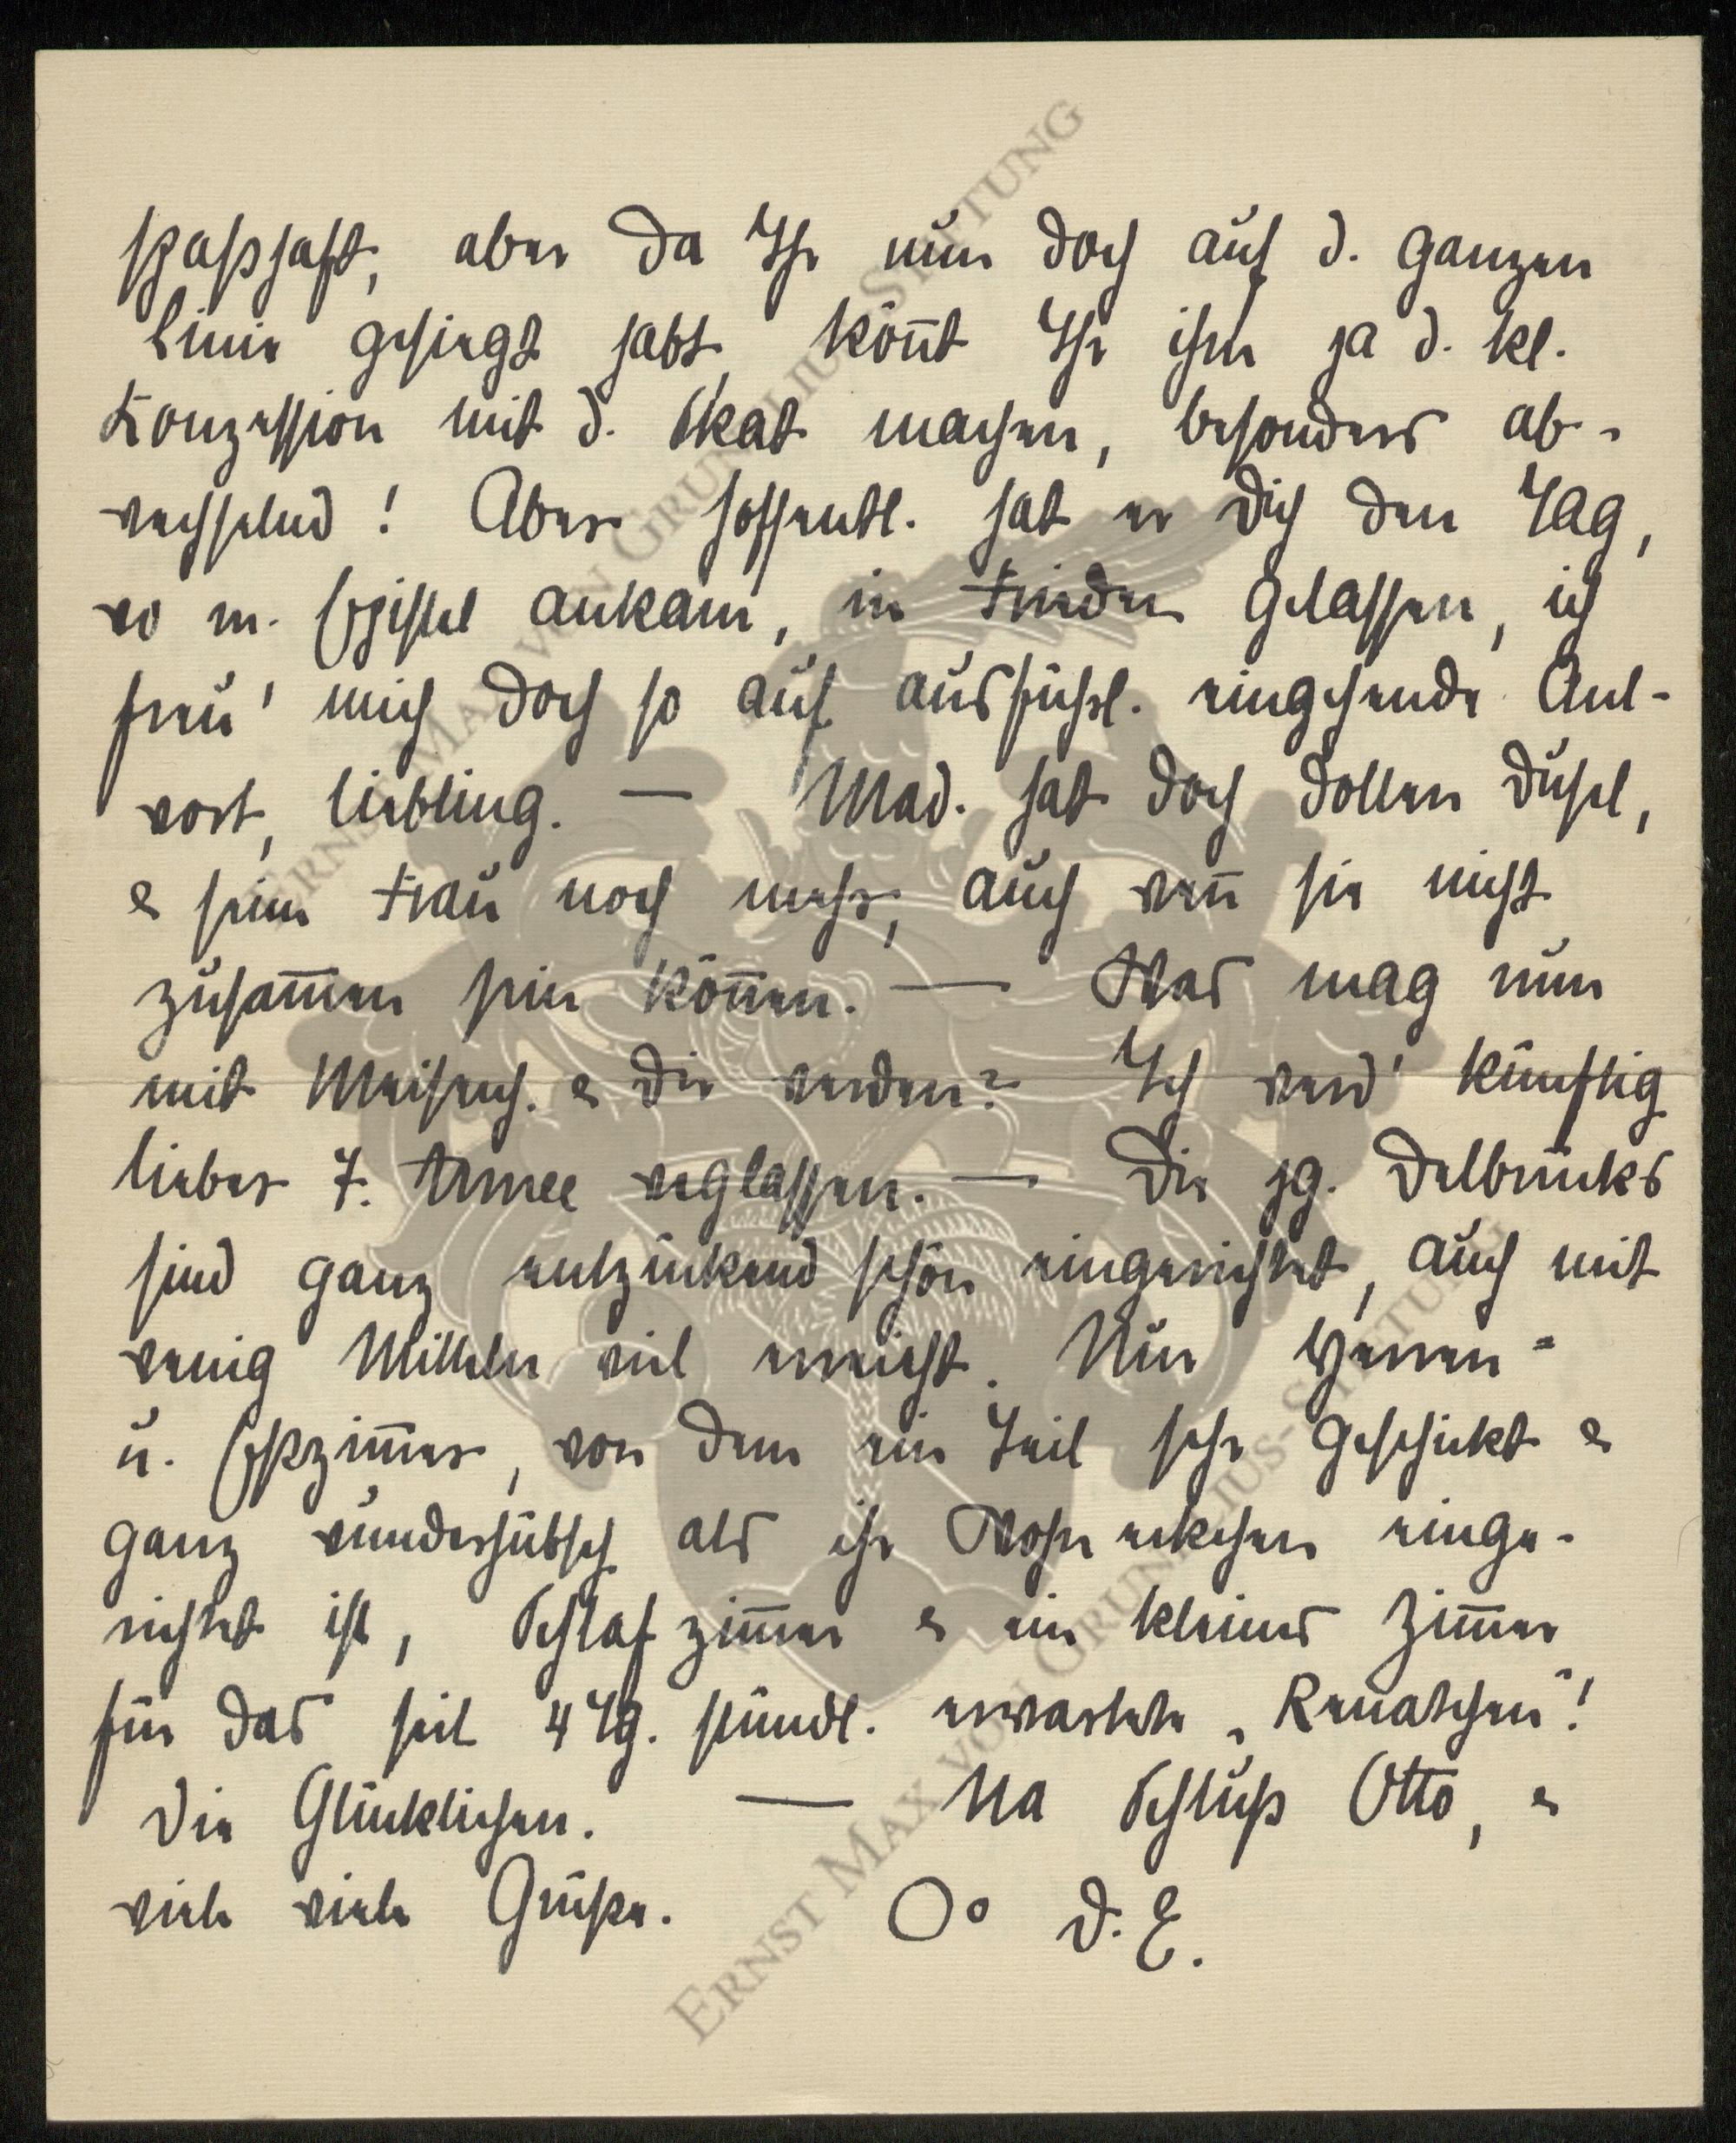 spaßhaft, aber da Ihr nun doch auf d. ganzen
Linie gesiegt habt, kön̄t Ihr ihm ja d. kl.
Konzession mit d. Skat machen, besonders ab-
wechselnd! Aber hoffentl. hat er Dich den Tag,
wo m. Epistel ankam, in Frieden gelassen, ich
freu' mich doch so auf ausführl. eingehende Ant-
wort, Liebling. — Mad. hat doch dollen Dusel,
& seine Frau noch mehr, auch wen̄ sie nicht
zusam̄en sein kön̄en. — Was mag nun
mit Meisensch. & Dir werden? Ich werd' künftig
lieber 7. Armee weglassen. — Die jg. Delbrücks
sind ganz entzückend schön eingerichtet, auch mit
wenig Mitteln viel erreicht. Nur Herren-
u. Eßzim̄er, von dem ein Teil sehr geschickt &
ganz wunderhübsch als ihr Wohneckchen einge-
richtet ist, Schlafzim̄er & ein kleines Zim̄er
für das seit 4 Tg. stündl. erwartete „Renatchen"!
Die Glücklichen. — Na Schluß Otto, &
viele viele Grüße. O o D. E.
ERNST MAX VON GRUNELIUS-STIFTUNG
ERNST MAX VON GRUNELIUS-STIFTUNG